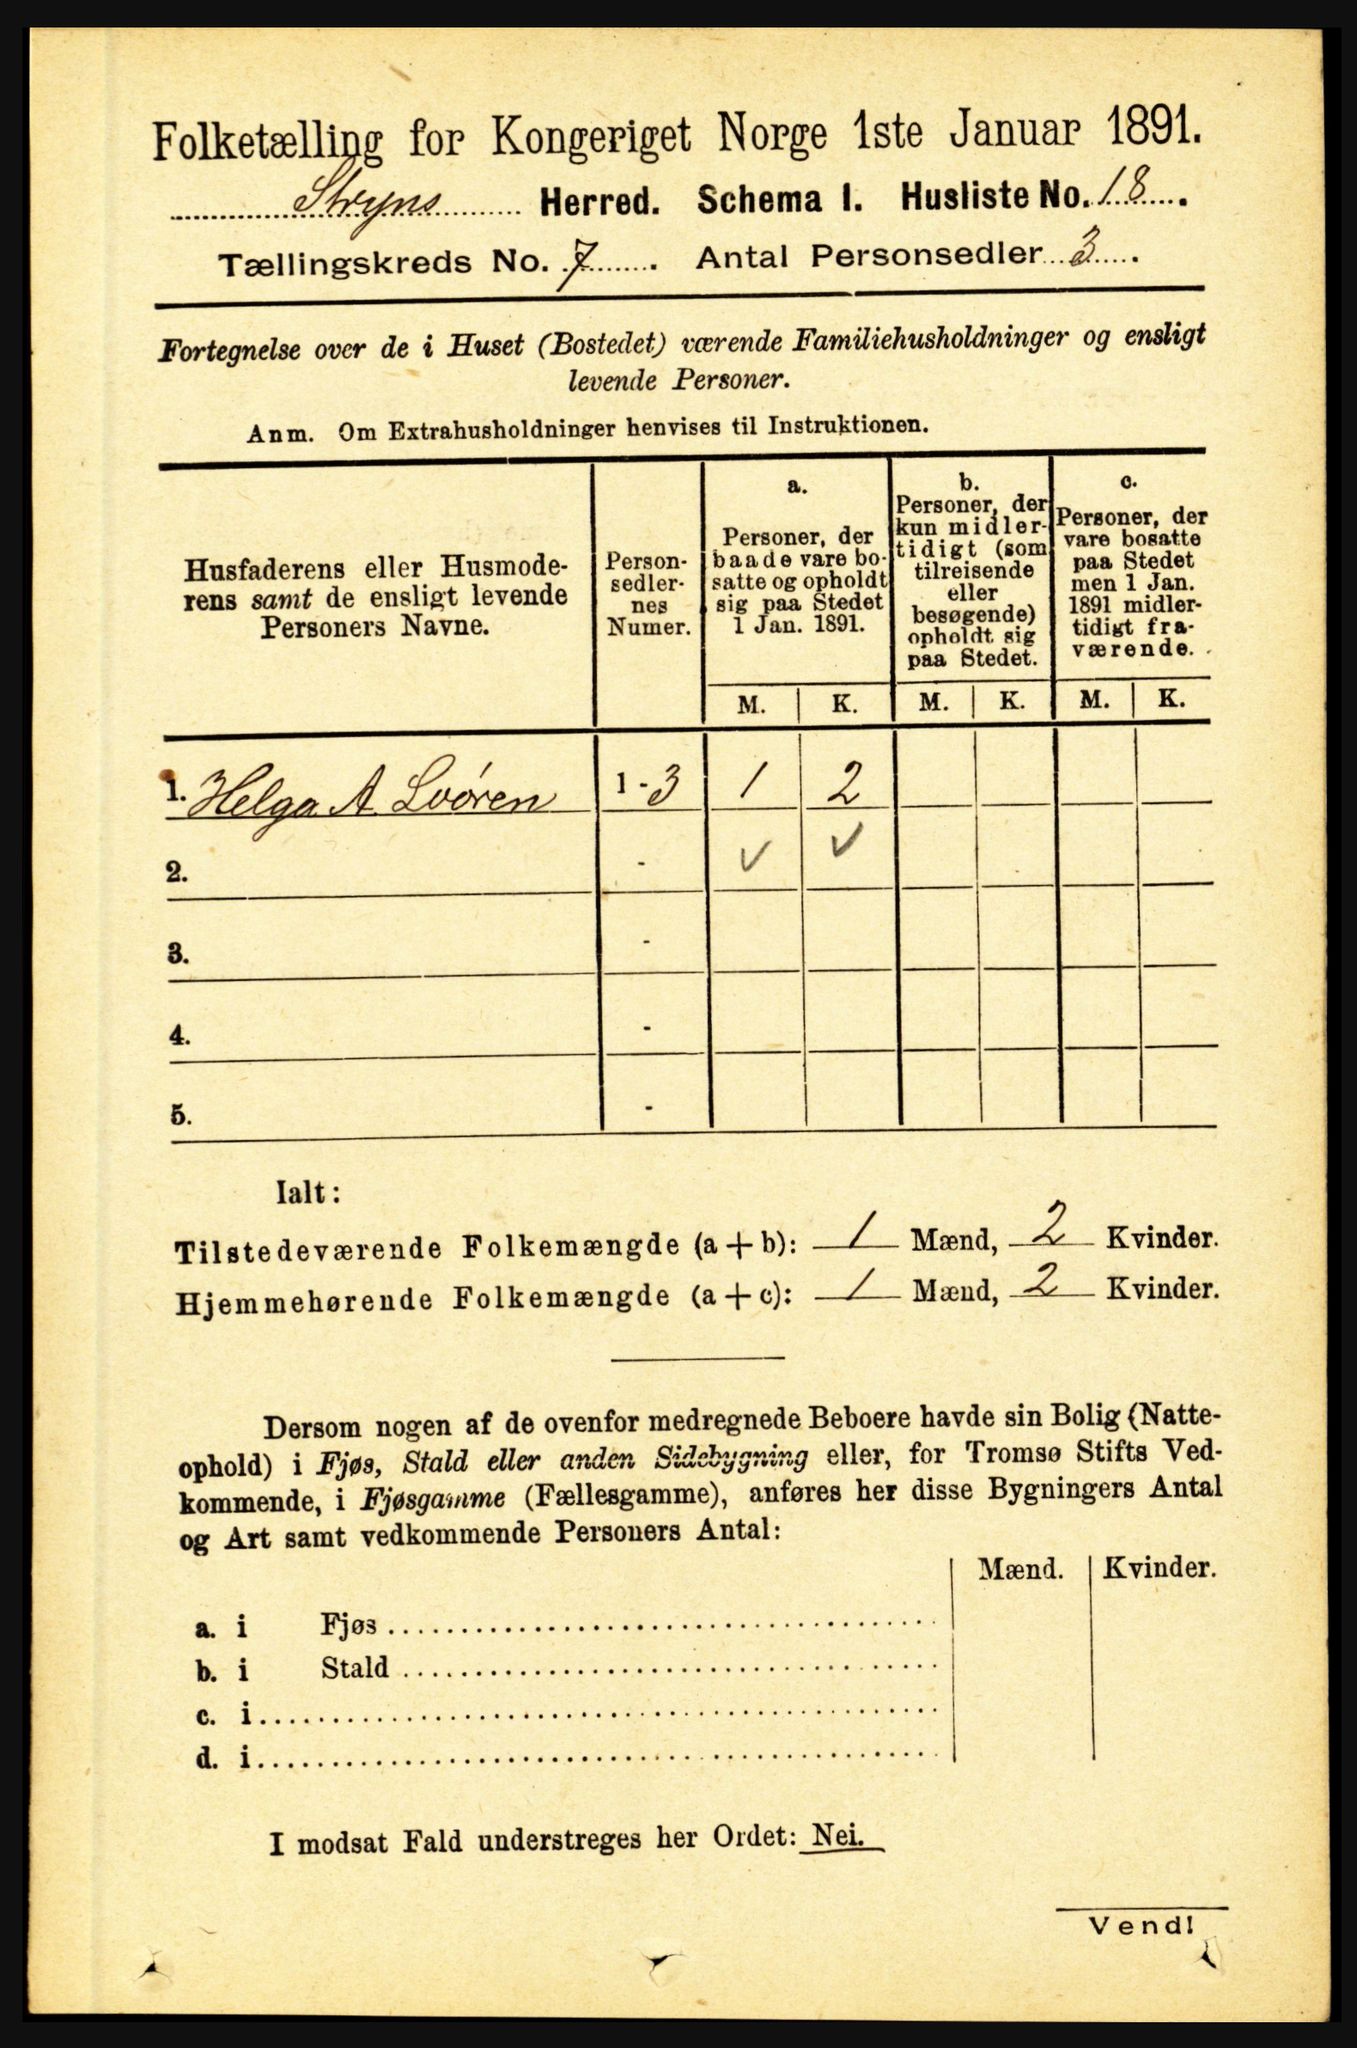 Folketælling for Kongeriget Norge 1ste Januar 1891.
Stryns Herred. Schema I. Husliste No. 18.
Tællingskreds No. 7. Antal Personsedler 3.
Fortegnelse over de i Huset (Bostedet) værende Familiehusholdninger og ensligt
levende Personer.
Anm. Om Extrahusholdninger henvises til Instruktionen.
Husfaderens eller Husmode-
rens samt de ensligt levende
Personers Navne.
Person-
sedler-
nes
Numer.
a.
Personer, der
baade vare bo-
satte og opholdt
sig paa Stedet
1 Jan. 1891.
b.
Personer, der
kun midler-
tidigt (som
tilreisende
eller
besøgende)
opholdt sig
paa Stedet.
c.
Personer, der
vare bosatte
paa Stedet
men 1 Jan.
1891 midler-
tidigt fra-
værende.
M. K. M. K. M. K.
1. Helga A. Loøren 1-3 1 2
2. - ✓ ✓
3. -
4. -
5. -
Ialt:
Tilstedeværende Folkemængde (a+b): 1 Mænd, 2 Kvinder.
Hjemmehørende Folkemængde (a+c): 1 Mænd, 2 Kvinder.
Dersom nogen af de ovenfor medregnede Beboere havde sin Bolig (Natte-
ophold) i Fjøs, Stald eller anden Sidebygning eller, for Tromsø Stifts Ved-
kommende, i Fjøsgamme (Fællesgamme), anføres her disse Bygningers Antal
og Art samt vedkommende Personers Antal:
Mænd. Kvinder.
a. i Fjøs
b. i Stald
c. i
d. i
I modsat Fald understreges her Ordet: Nei.
Vend!